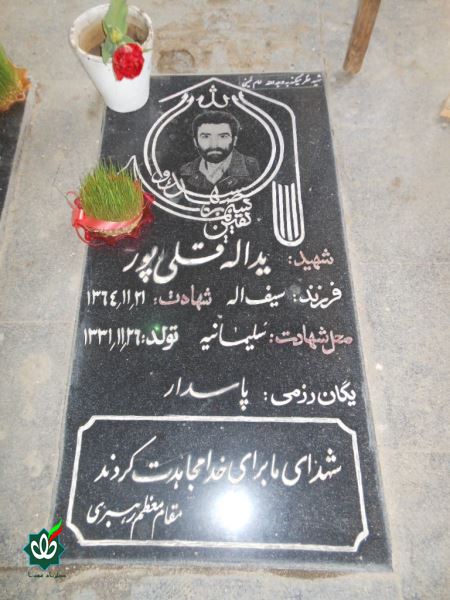 الله
شهید: یداله قلی پور
فرزند: سیف اله شهادت: ۱۳۶۴٫۱۱٫۲۱
محل شهادت: سلیمانیه تولد: ۱۳۳۱٫۱۱٫۲۶
یگان رزمی: پاسدار
شهدای ما برای خدا مجاهدت کردند
مقام معظم رهبری